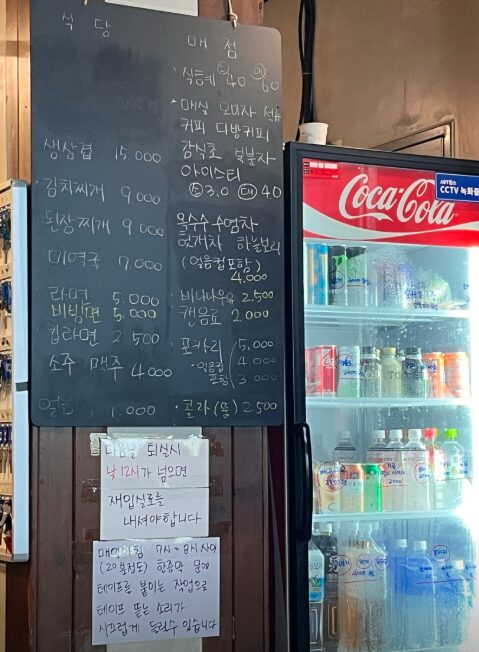 식당
생삼겹 15.000
김치찌개 9.000
된장찌개 9.000
미역국 7.000
라면 5.000
비빔면 5.000
컵라면 2500
소주 맥주 4000
얼음 1.000
매점
·식혜 소 4.0 대 6.0
·매실 오미자
커피 다방커피
감식초 복분자
아이스티
소 3.0 대 4.0
옥수수수염차
헛개차 하늘보리
(얼음컵포함)
4.000
·바나나우유 2.500
·캔음료 2.000
·포카리 5.000
·얼음컵 4.000
포함 3.000
·콜라(뚱) 2500
다음날 퇴실시
낮 12시가 넘으면
재입실료를
내셔야합니다
매일아침 7시~8시 사이
(20분정도) 한증막 몸에
테이프를 붙이는 작업으로
테이프 뜯는 소리가
시끄럽게 들릴수 있습니다
Coca-Cola
ADT캡스
CCTV 녹화중